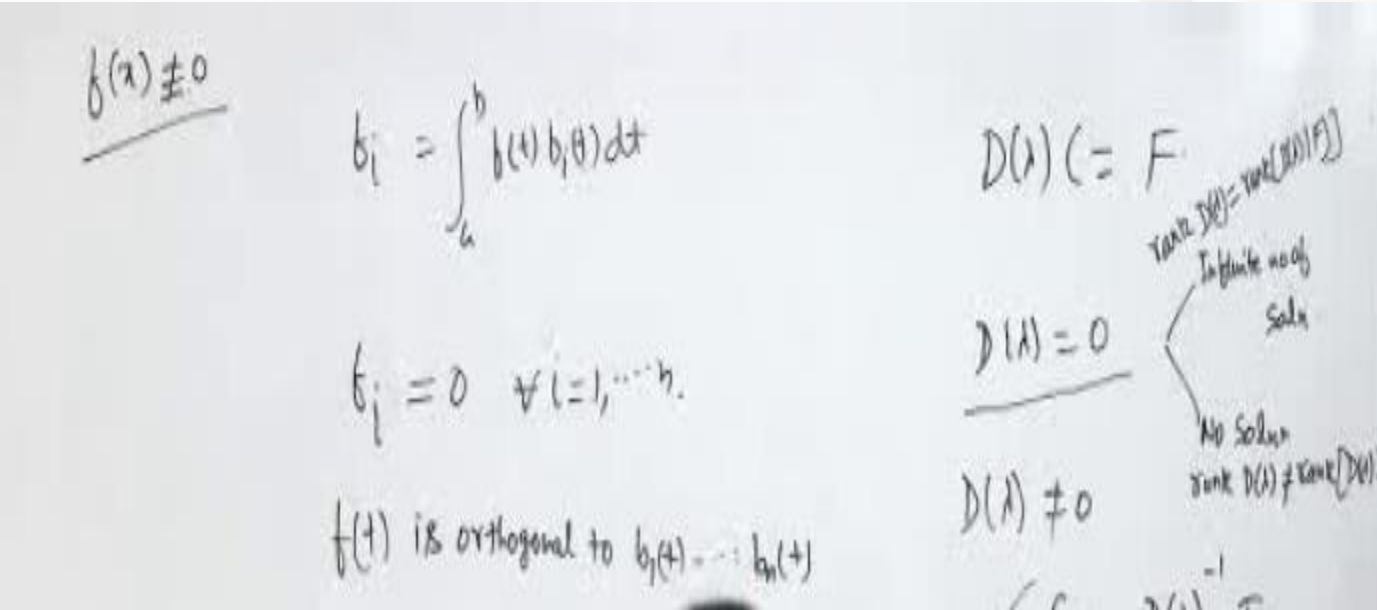 f(x) ≢ 0
f_i = ∫_a^b f(t) b_i(t) dt
f_i = 0 ∀ i=1,....n.
f(t) is orthogonal to b_1(t)....b_n(t)
D(λ) C = F
rank D(λ) = rank[D(λ)|F]
Infinite no of
Soln
D(λ) = 0
No Solun
rank D(λ) ≠ rank[D(λ)
D(λ) ≠ 0
C = D(λ)^-1 F